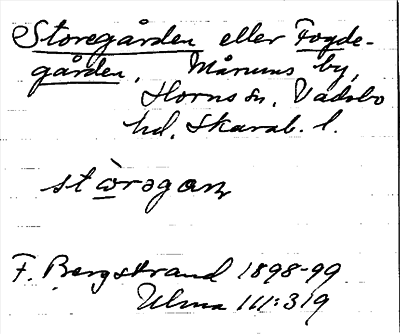 Storegården eller Fogde-
gården, Mårums by,
Horns sn, Vadsbo
hd, Skarab. l.
stòrəgaɳ
F. Bergstrand 1898-99
Ulma 111:319